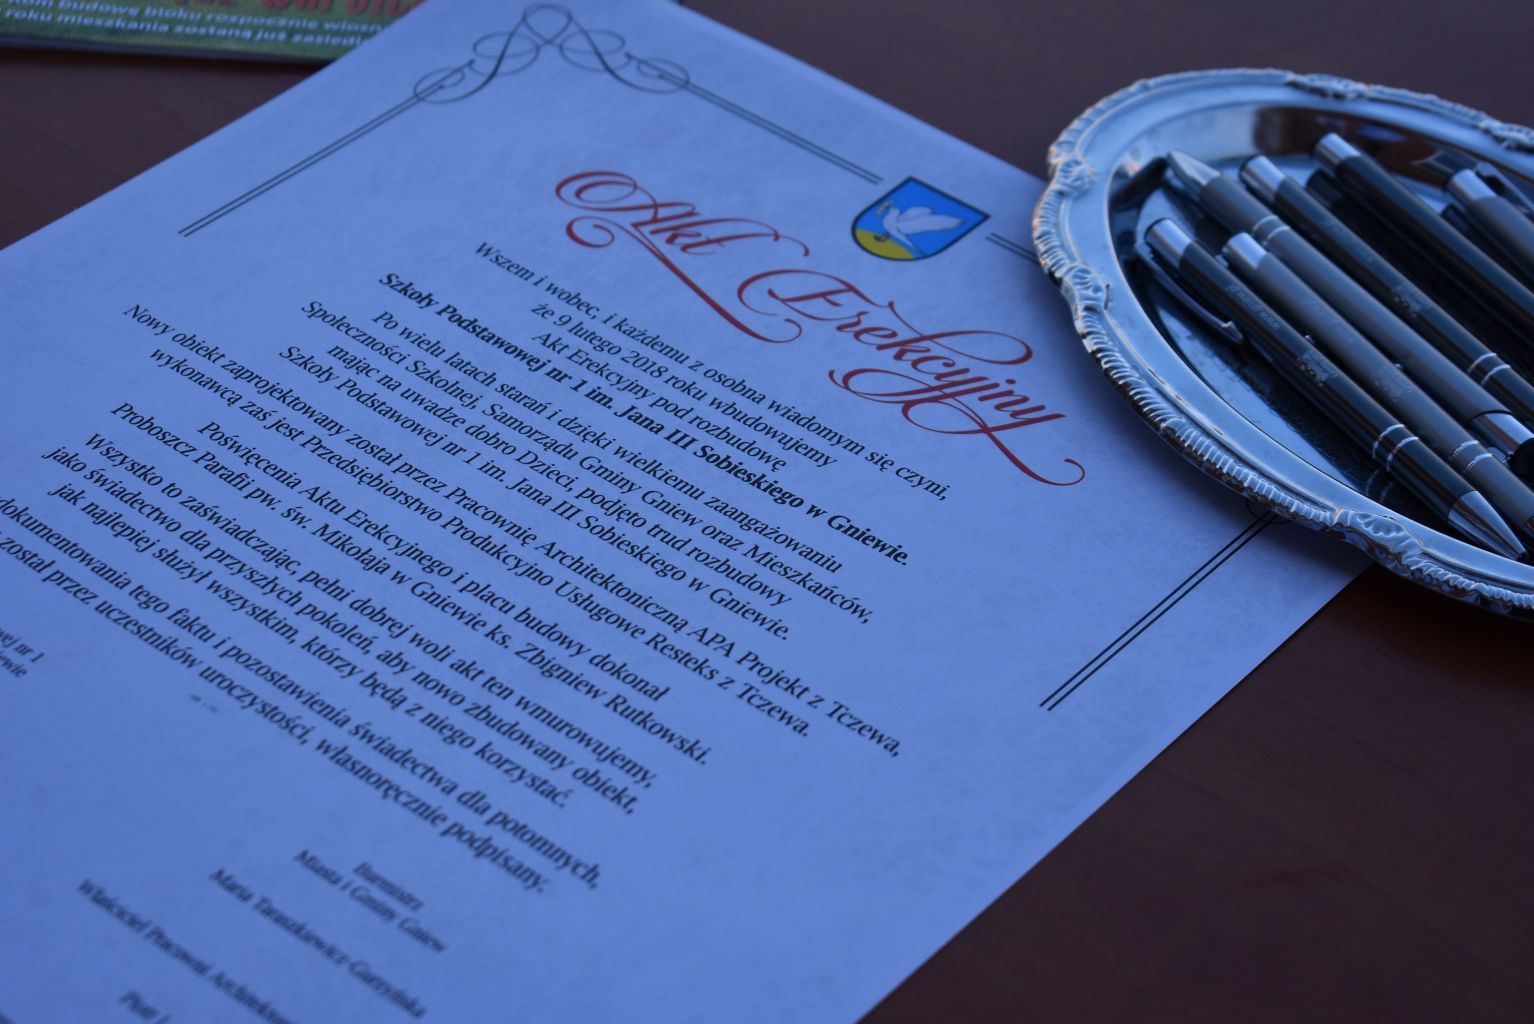 kom budowę bloku rozpocznie wiosn
roku mieszkania zostaną już zasiedl
Akt Erekcyjny
Wszem i wobec, i każdemu z osobna wiadomym się czyni,
że 9 lutego 2018 roku wbudowujemy
Akt Erekcyjny pod rozbudowę
Szkoły Podstawowej nr 1 im. Jana III Sobieskiego w Gniewie.
Po wielu latach starań i dzięki wielkiemu zaangażowaniu
Społeczności Szkolnej, Samorządu Gminy Gniew oraz Mieszkańców,
mając na uwadze dobro Dzieci, podjęto trud rozbudowy
Szkoły Podstawowej nr 1 im. Jana III Sobieskiego w Gniewie.
Nowy obiekt zaprojektowany został przez Pracownię Architektoniczną APA Projekt z Tczewa,
wykonawcą zaś jest Przedsiębiorstwo Produkcyjno Usługowe Resteks z Tczewa.
Poświęcenia Aktu Erekcyjnego i placu budowy dokonał
Proboszcz Parafii pw. św. Mikołaja w Gniewie ks. Zbigniew Rutkowski.
Wszystko to zaświadczając, pełni dobrej woli akt ten wmurowujemy,
jako świadectwo dla przyszłych pokoleń, aby nowo zbudowany obiekt,
jak najlepiej służył wszystkim, którzy będą z niego korzystać.
dokumentowania tego faktu i pozostawienia świadectwa dla potomnych,
został przez uczestników uroczystości, własnoręcznie podpisany.
wej nr 1
iewie
Burmistrz
Miasta i Gminy Gniew
Maria Taraszkiewicz-Gurzyńska
Właściciel Pracowni Architekton
Piotr